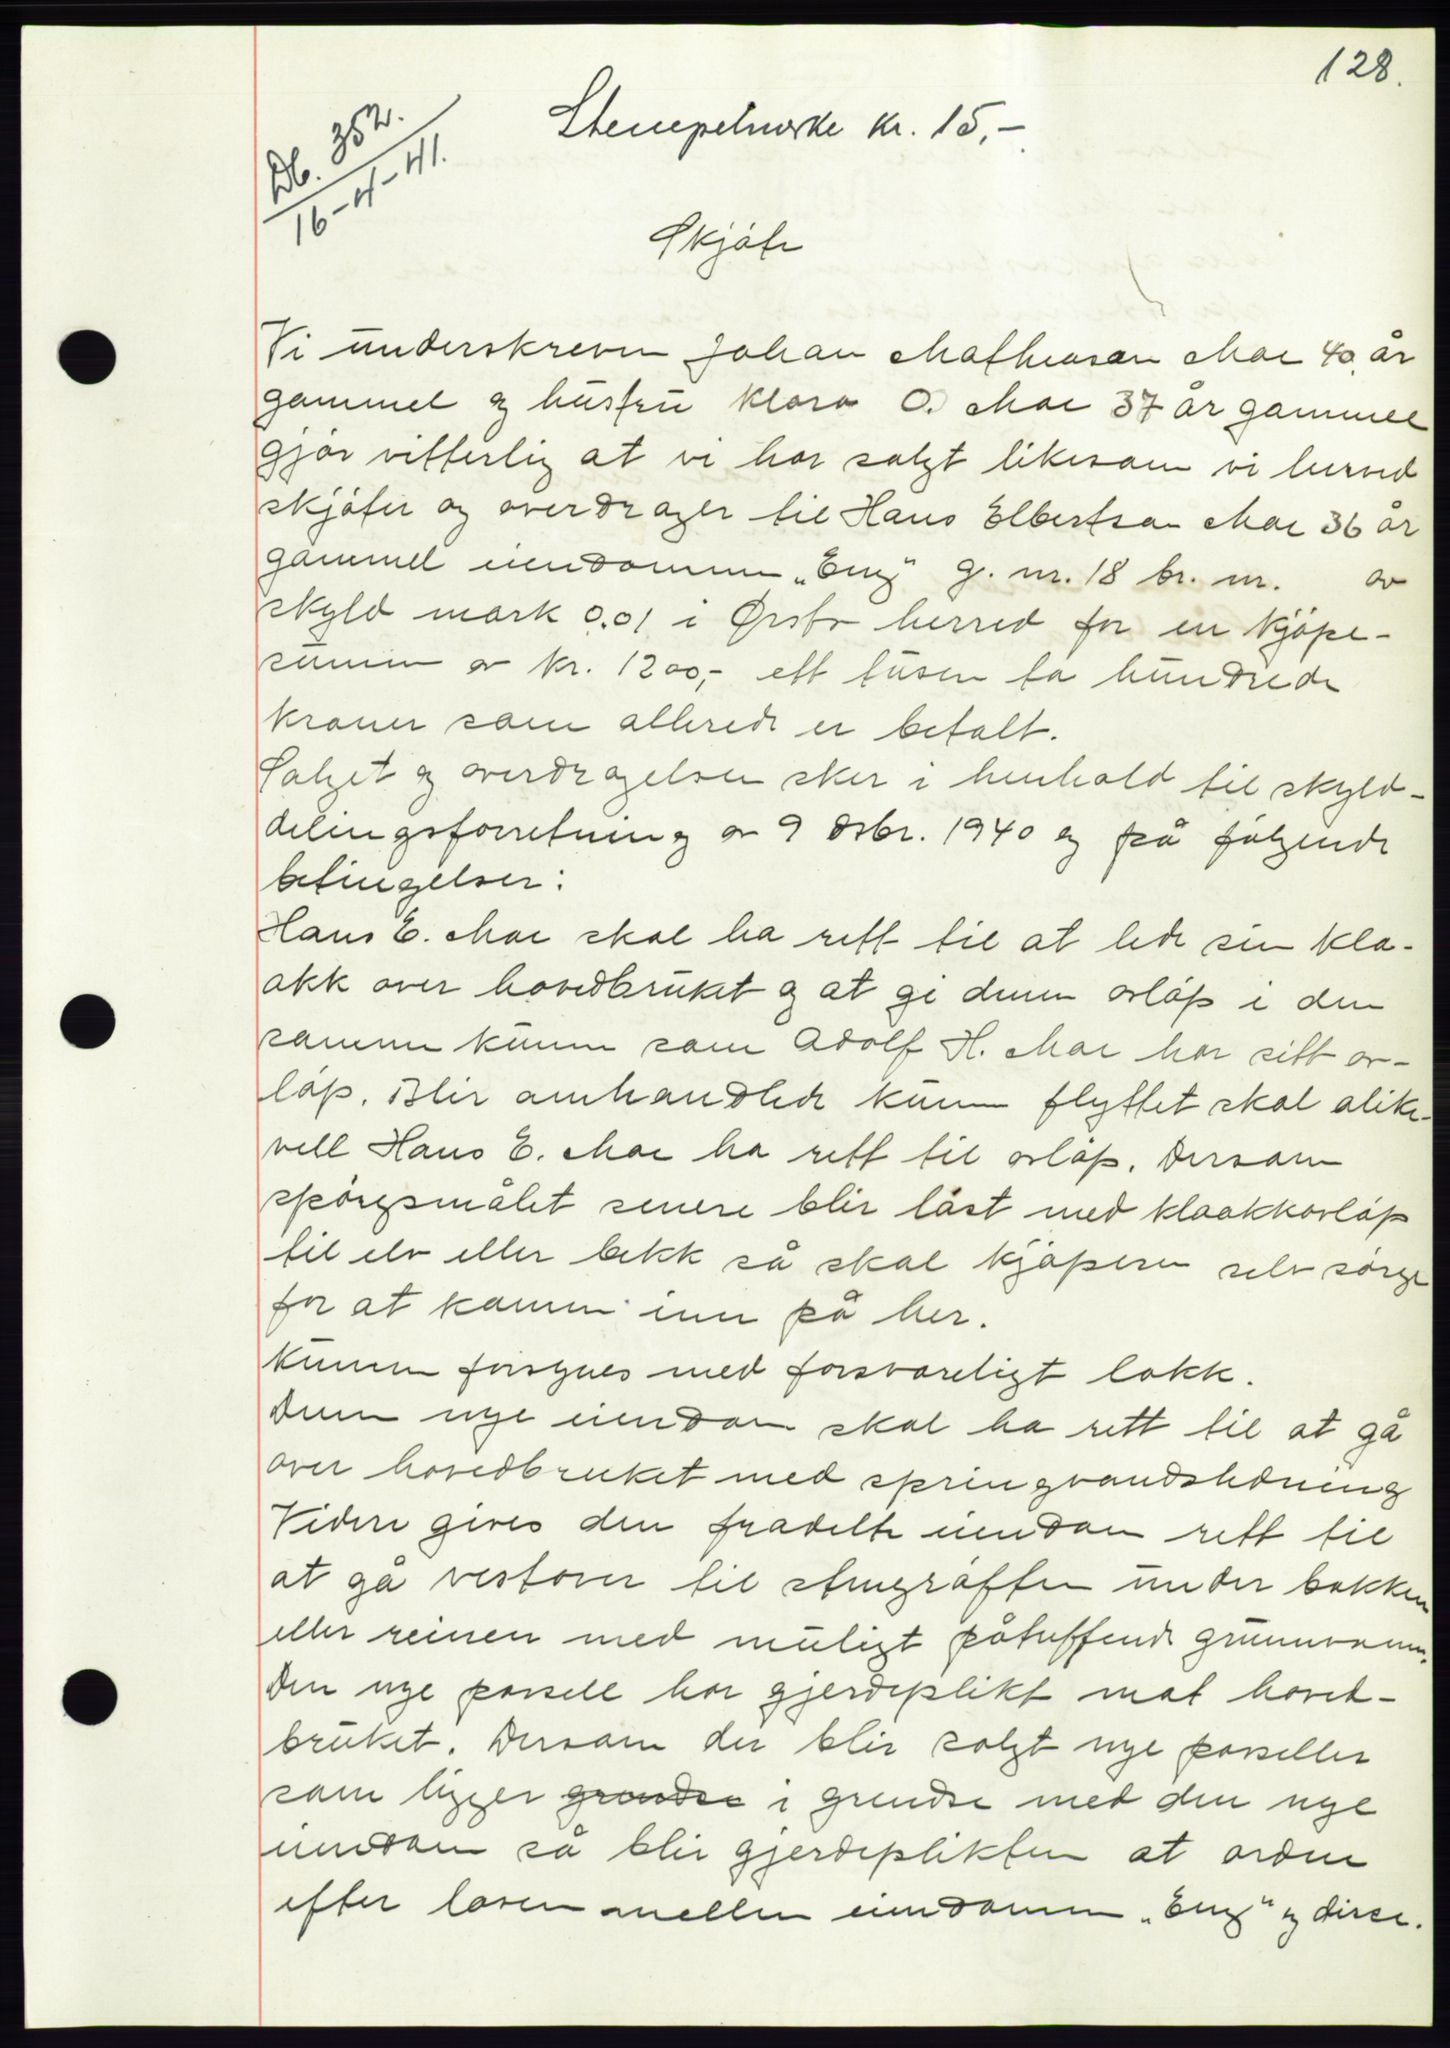 128.
Stempelmerke kr. 15,-
Db. 352.
16-4-41.
Skjöte
Vi underskreven Johan Matheasen Moe 40 år
gammel og hustru Klara O. Moe 37 år gammel
gjør vitterlig at vi har solgt likesom vi herved
skjöter og overdrager til Hans Elbertsen Moe 36 år
gammel eiendommen „Eng" g. nr. 18 br. nr. av
skyld mark 0.01 i Ørsta herred for en kjöpe-
summ av kr. 1200,- ett tusen to hundrede
kroner som allerede er betalt.
Salget og overdragelsen sker i henhold til skyld-
delingsforretning av 9 dsbr. 1940 og på fölgende
betingelser:
Hans E. Moe skal ha rett til at lede sin klo-
akk over hovedbruket og at gi denne avlöp i den
samme kumm som Adolf H. Moe har sitt av-
löp. Blir omhandlede kumm flyttet skal alike-
vell Hans E. Moe ha rett til avlöp. Dersom
spörgsmålet senere blir löst med kloakkavlöp
til elv eller bekk så skal kjöperen selv sörge
for at komme inn på her.
Kummen forsynes med forsvareligt lokk.
Denne nye eiendom skal ha rett til at gå
over hovedbruket med springvandsledning
Videre gives den fradelte eiendom rett til
at gå vestover til stengröften under bakken
eller reinen med muligt påtreffende grunnvann.
Den nye parsell har gjerdeplikt mot hoved-
bruket. Dersom der blir solgt nye parseller
som ligger grendse i grendse med den nye
eiendom så blir gjerdeplikten at ordne
efter loven mellem eiendommen „Eng" og disse.